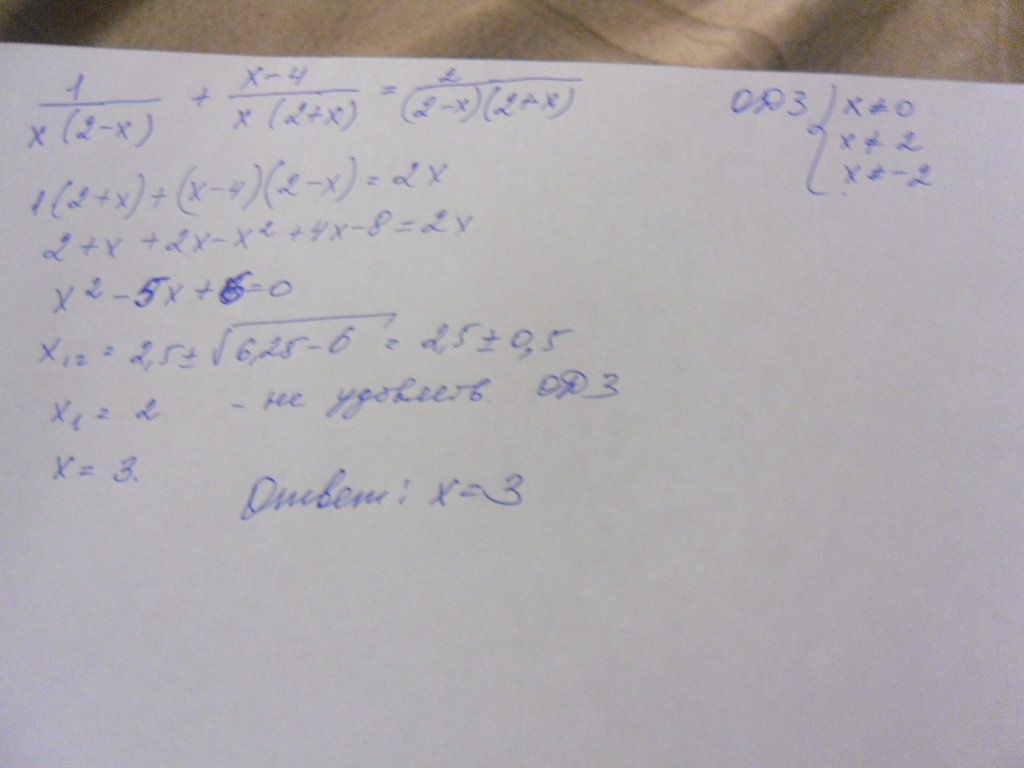 1/(x(2-x)) + (x-4)/(x(2+x)) = 2/((2-x)(2+x))
ОДЗ { x≠0
x≠2
x≠-2
1(2+x)+(x-4)(2-x)=2x
2+x+2x-x²+4x-8=2x
x²-5x+6=0
x₁₂=2,5±√(6,25-6)=2,5±0,5
x₁=2 - не удовлетв. ОДЗ
x=3.
Ответ: x=3